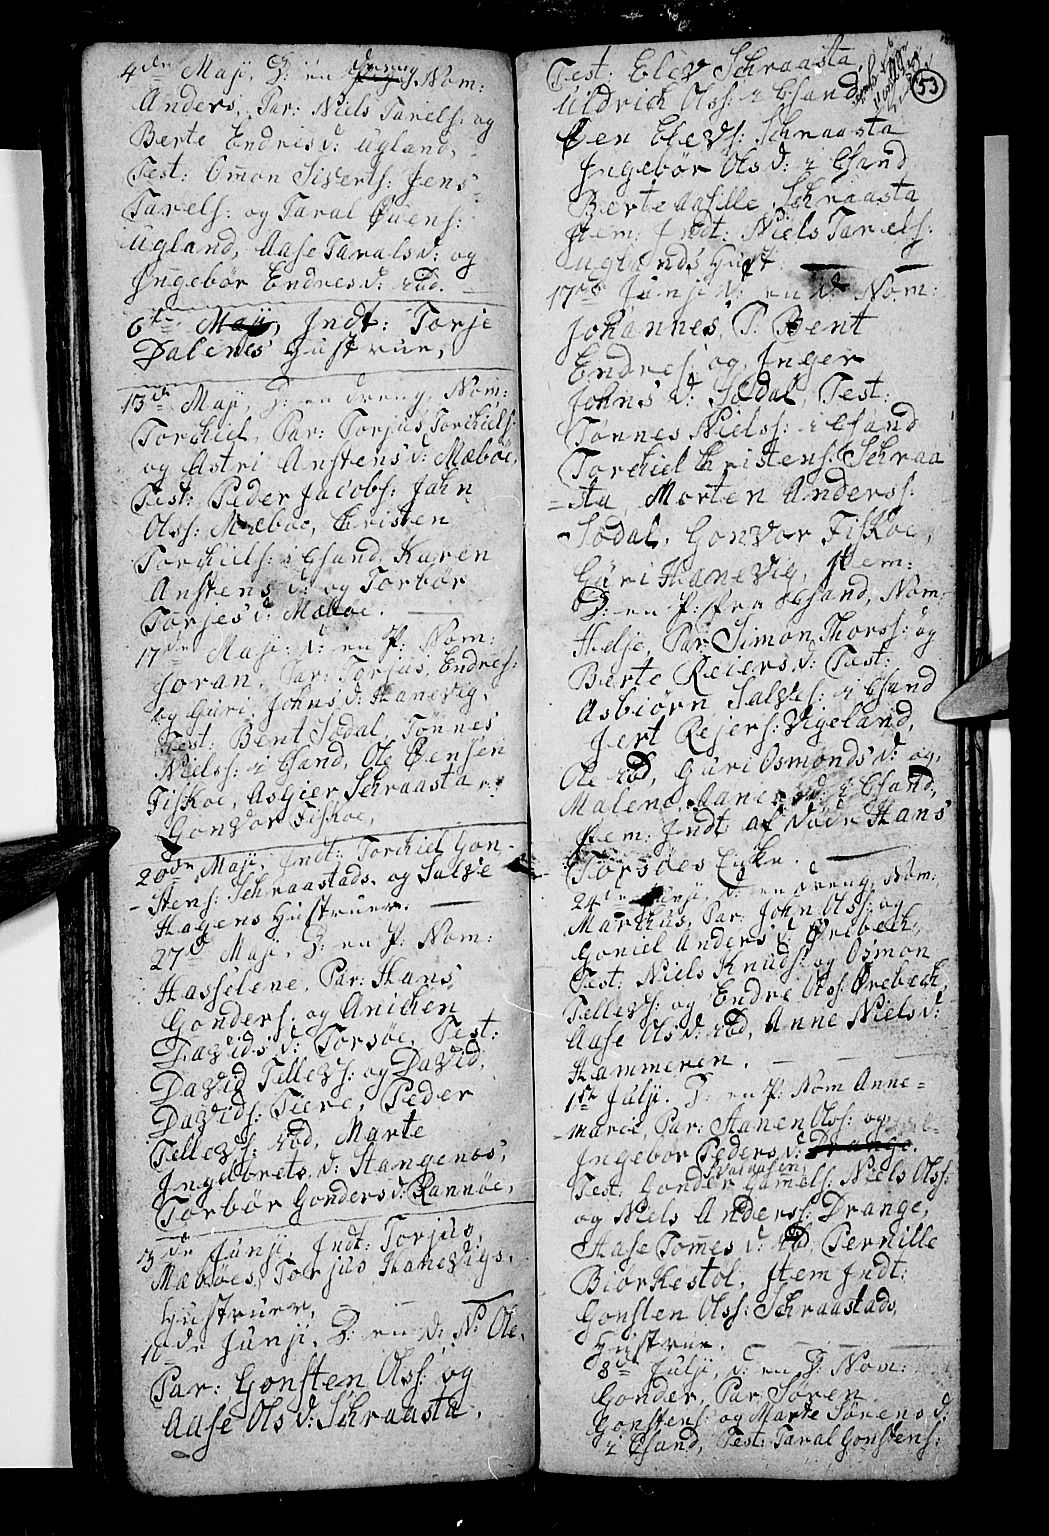 4de Maji, D: en dreng Nom:
Anders, Par: Niels Tarels: og
Berte Endris d: Ugland,
Test: Omon Siverts: Jens
Tarels: og Taral Øuens:
Ugland, Aase Tarals d: og
Ingebør Endres d: ibd.
6te Maji, Indt: Torje
Dalenes Hustrue,
13de Maji, D: en dreng, Nom:
Torchiel, Par: Torjus Torchiels:
og Astri Anstens d: Mæbøe,
Test: Peder Jacobs: Jahn
Olss: Mæbøe, Christen
Torchiels: i Chsand, Karen
Anstens d: og Torbør
Torjes d: Mæbøe.
17de Maji: d: en P: Nom:
Joran, Par: Torjus Endres:
og Guri Johns d: Hanevig,
Test: Bent Sødal, Tønnes
Nielss: i Chsand, Ole Øensen
Fiskoe, Asgier Schraasta,
Gonvor Fiskoe,
20de Maji, Indt: Torchiel Gon-
-stens: Schraastads, og Salve
Hagens Hustruer.
27de Maji, D: en P: Nom:
Hasselene, Par: Hans
Gonders: og Anichen
Davids d: Torsøe, Test:
David Tellevs: og David
Davids: Tiere, Peder
Tellevs: ibd, Marte
Ingebrets d: Stangenes,
Torbør Gonders d: Rannøe,
13de Junji, Indt: Torjus
Mæbøes, Torjus Hanevigs,
Hustruer,
10de Junji, D: en d: N: Ole,
Par: Gonsten Olss: og
Aase Ols d: Schraasta.
53
Test: Elev Schraasta,
Uldrich Olss: i Chsand
Øen Elevs: Schraasta
Ingebør Ols d: i Chsand
Berte Aasille Schraasta
Item: Indt: Niels Tarels:
Uglands Hust
17de Junji d: en d: Nom:
Johannes, P: Bent
Endres: og Inger
Johns d: Sødal, Test:
Tønnes Nielss: i Chsand
Torchiel Christens: Schraa
-sta, Morten Anderss:
Sødal, Gonvor Fiskoe,
Guri Hanevig, Item:
D: en P: fra Chsand, Nom:
Helje, Par Simon Thorss: og
Berte Reiers d: Test:
Asbiørn Salves: i Chsand
Jert Rejers: Vigeland,
Ole ibd, Guri Osmonds d: og
Malene Aaners d: i Chsand,
Item: Indt: af Hans
Torsøes Enke.
24de Junji, D: en dreng, Nom:
Marchus, Par: John Olss: og
Goniel Anders d: Ørebech,
Test: Niels Knuds: og Osmon
Tellevs: og Endre Olss: Ørebech,
Aase Ols d: ibd, Anne Niels d:
Hammeren.
1ste Julji. D: en P: Nom Anne-
-marie, Par: Stanen Olss: og
Ingebor Peders d: Drange.
Test: Gonder Gamels: Niels Olss:
og Niels Anderss: Drange,
Aase Tomes d: ibd, Pernille
Biørkestøl, Item Indt:
Gonsten Olss: Schraastads
Hustrue.
8de Julji, d: en D: Nom:
Gonder, Par Søren
Gonstens: og Marte Sørens d:
i Chsand, Test: Taral Gonstens: